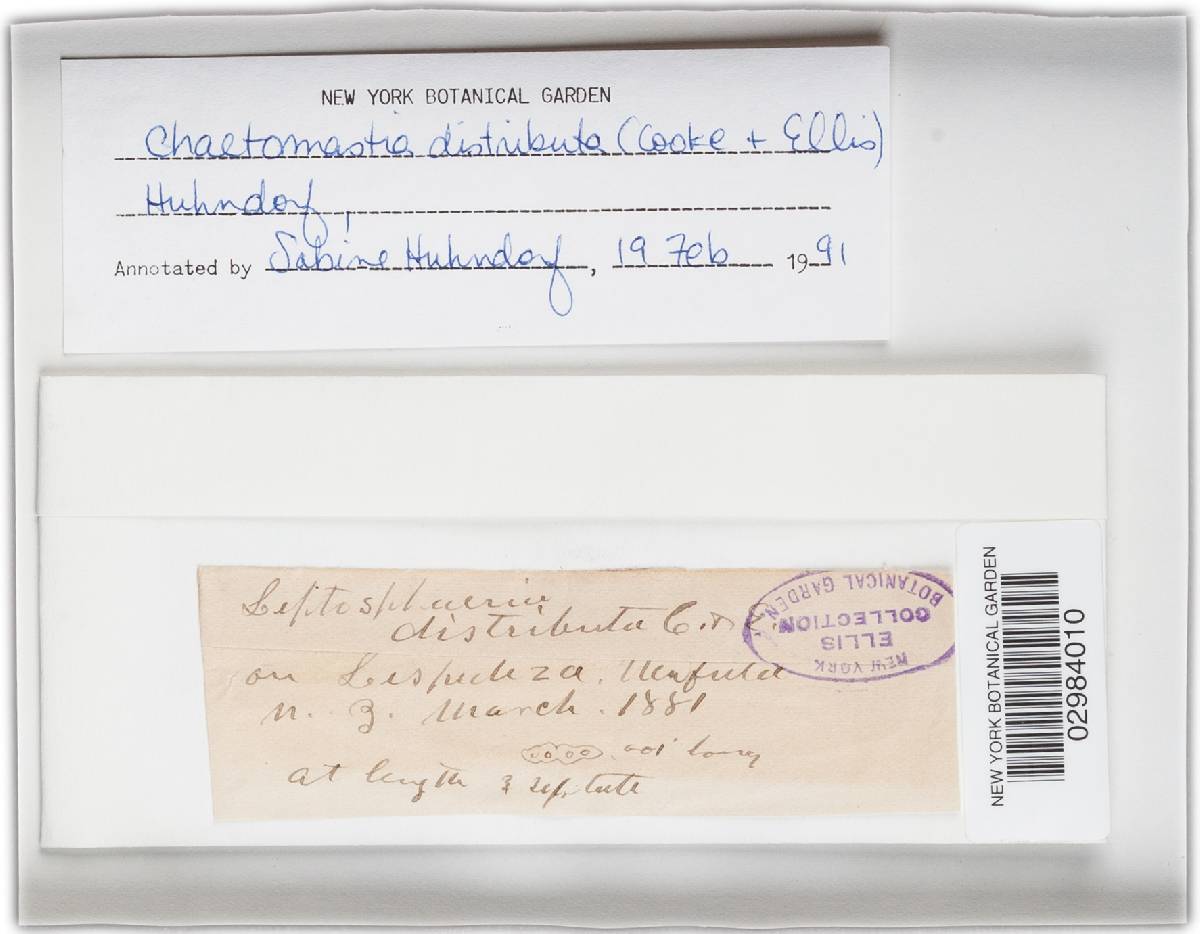 NEW YORK BOTANICAL GARDEN
Chaetomastia distributa (Cooke + Ellis)
Huhndorf,
Annotated by Sabine Huhndorf, 19 Feb 1991
Leptosphaeria
distributa C. & E.
on Lespedeza. Newfield
N. J. March. 1881
.001' long
at length 3 septate
NEW YORK
ELLIS
COLLECTION
BOTANICAL GARDEN
NEW YORK BOTANICAL GARDEN
02984010